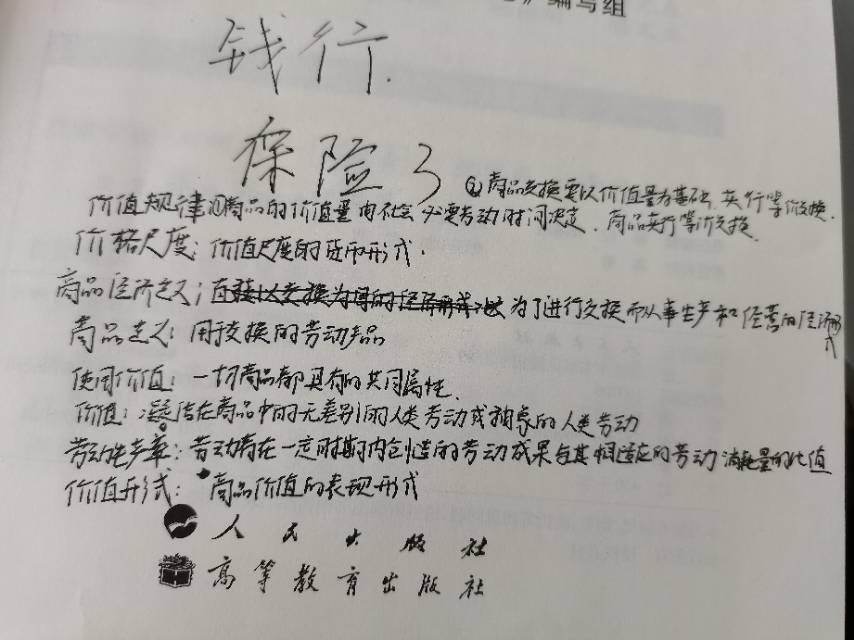 》编写组
钱行.
保险3
②商品交换要以价值量为基础,实行等价交换.
价值规律①商品的价值量由社会必要劳动时间决定.商品实行等价交换.
价格尺度:价值尺度的货币形式.
商品经济定义:直接以交换为目的的经济形式 为了进行交换而从事生产和经营的经济形式
商品定义:用于交换的劳动产品
使用价值:一切商品都具有的共同属性.
价值:凝结在商品中的无差别的人类劳动或抽象的人类劳动
劳动生产率:劳动者在一定时期内创造的劳动成果与其相适应的劳动消耗量的比值
价值形式:商品价值的表现形式
人民出版社
高等教育出版社